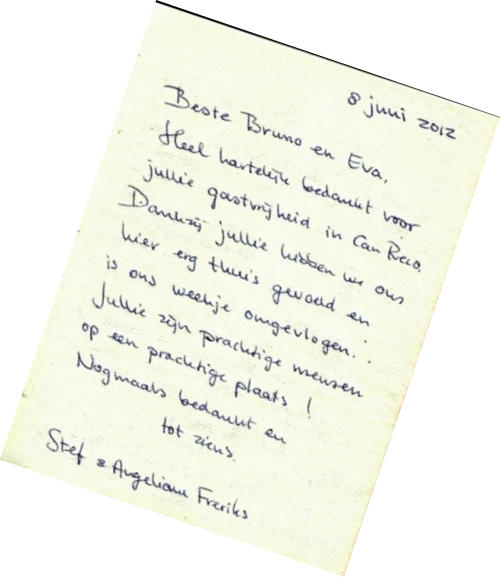 8 juni 2012
Beste Bruno en Eva,
Heel hartelijk bedankt voor
jullie gastvrijheid in Can Reco.
Dankzij jullie hebben we ons
hier erg thuis gevoeld en
is ons weekje omgevlogen...
Jullie zijn prachtige mensen
op een prachtige plaats !
Nogmaals bedankt en
tot ziens.
Stef & Angeliane Freriks